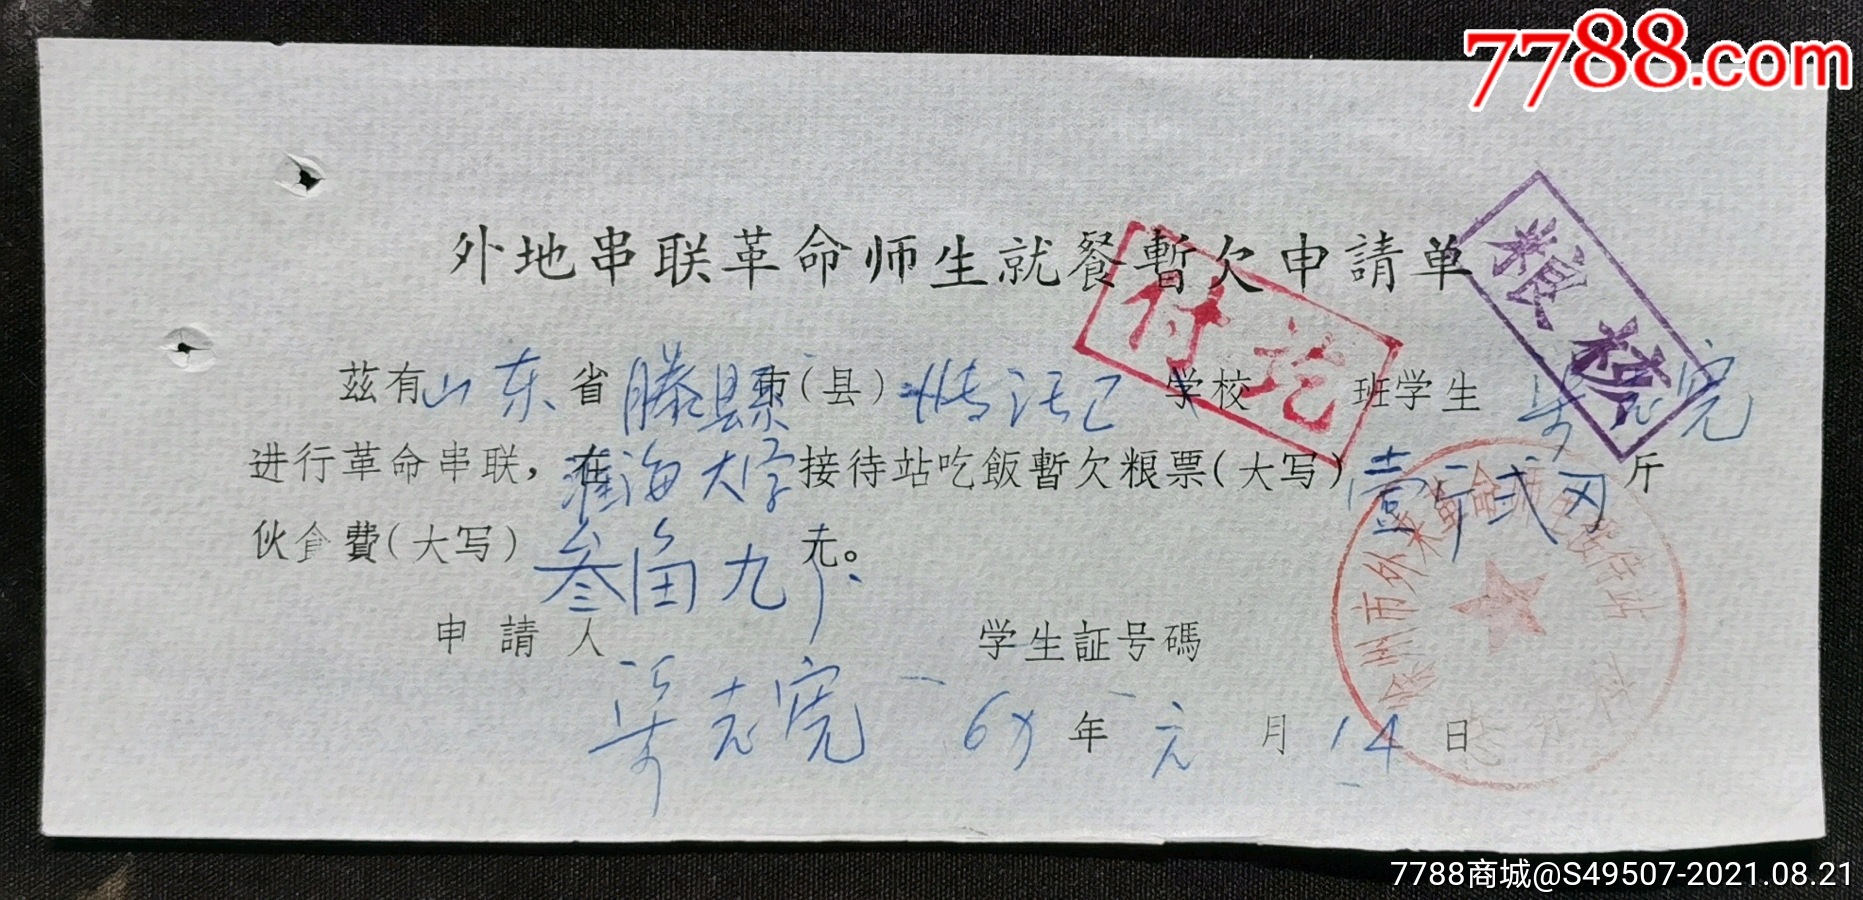 7788.com
外地串联革命师生就餐暫欠申請单
粮 楚
付讫
兹有山东省滕县市(县) 学校 班学生
进行革命串联,在淮海大学接待站吃飯暫欠粮票(大写)壹斤贰刄斤
伙食費(大写)叁角九 元。
申請人 学生証号碼
67年元月14日
州市外来革命师生接待站
7788商城@S49507-2021.08.21